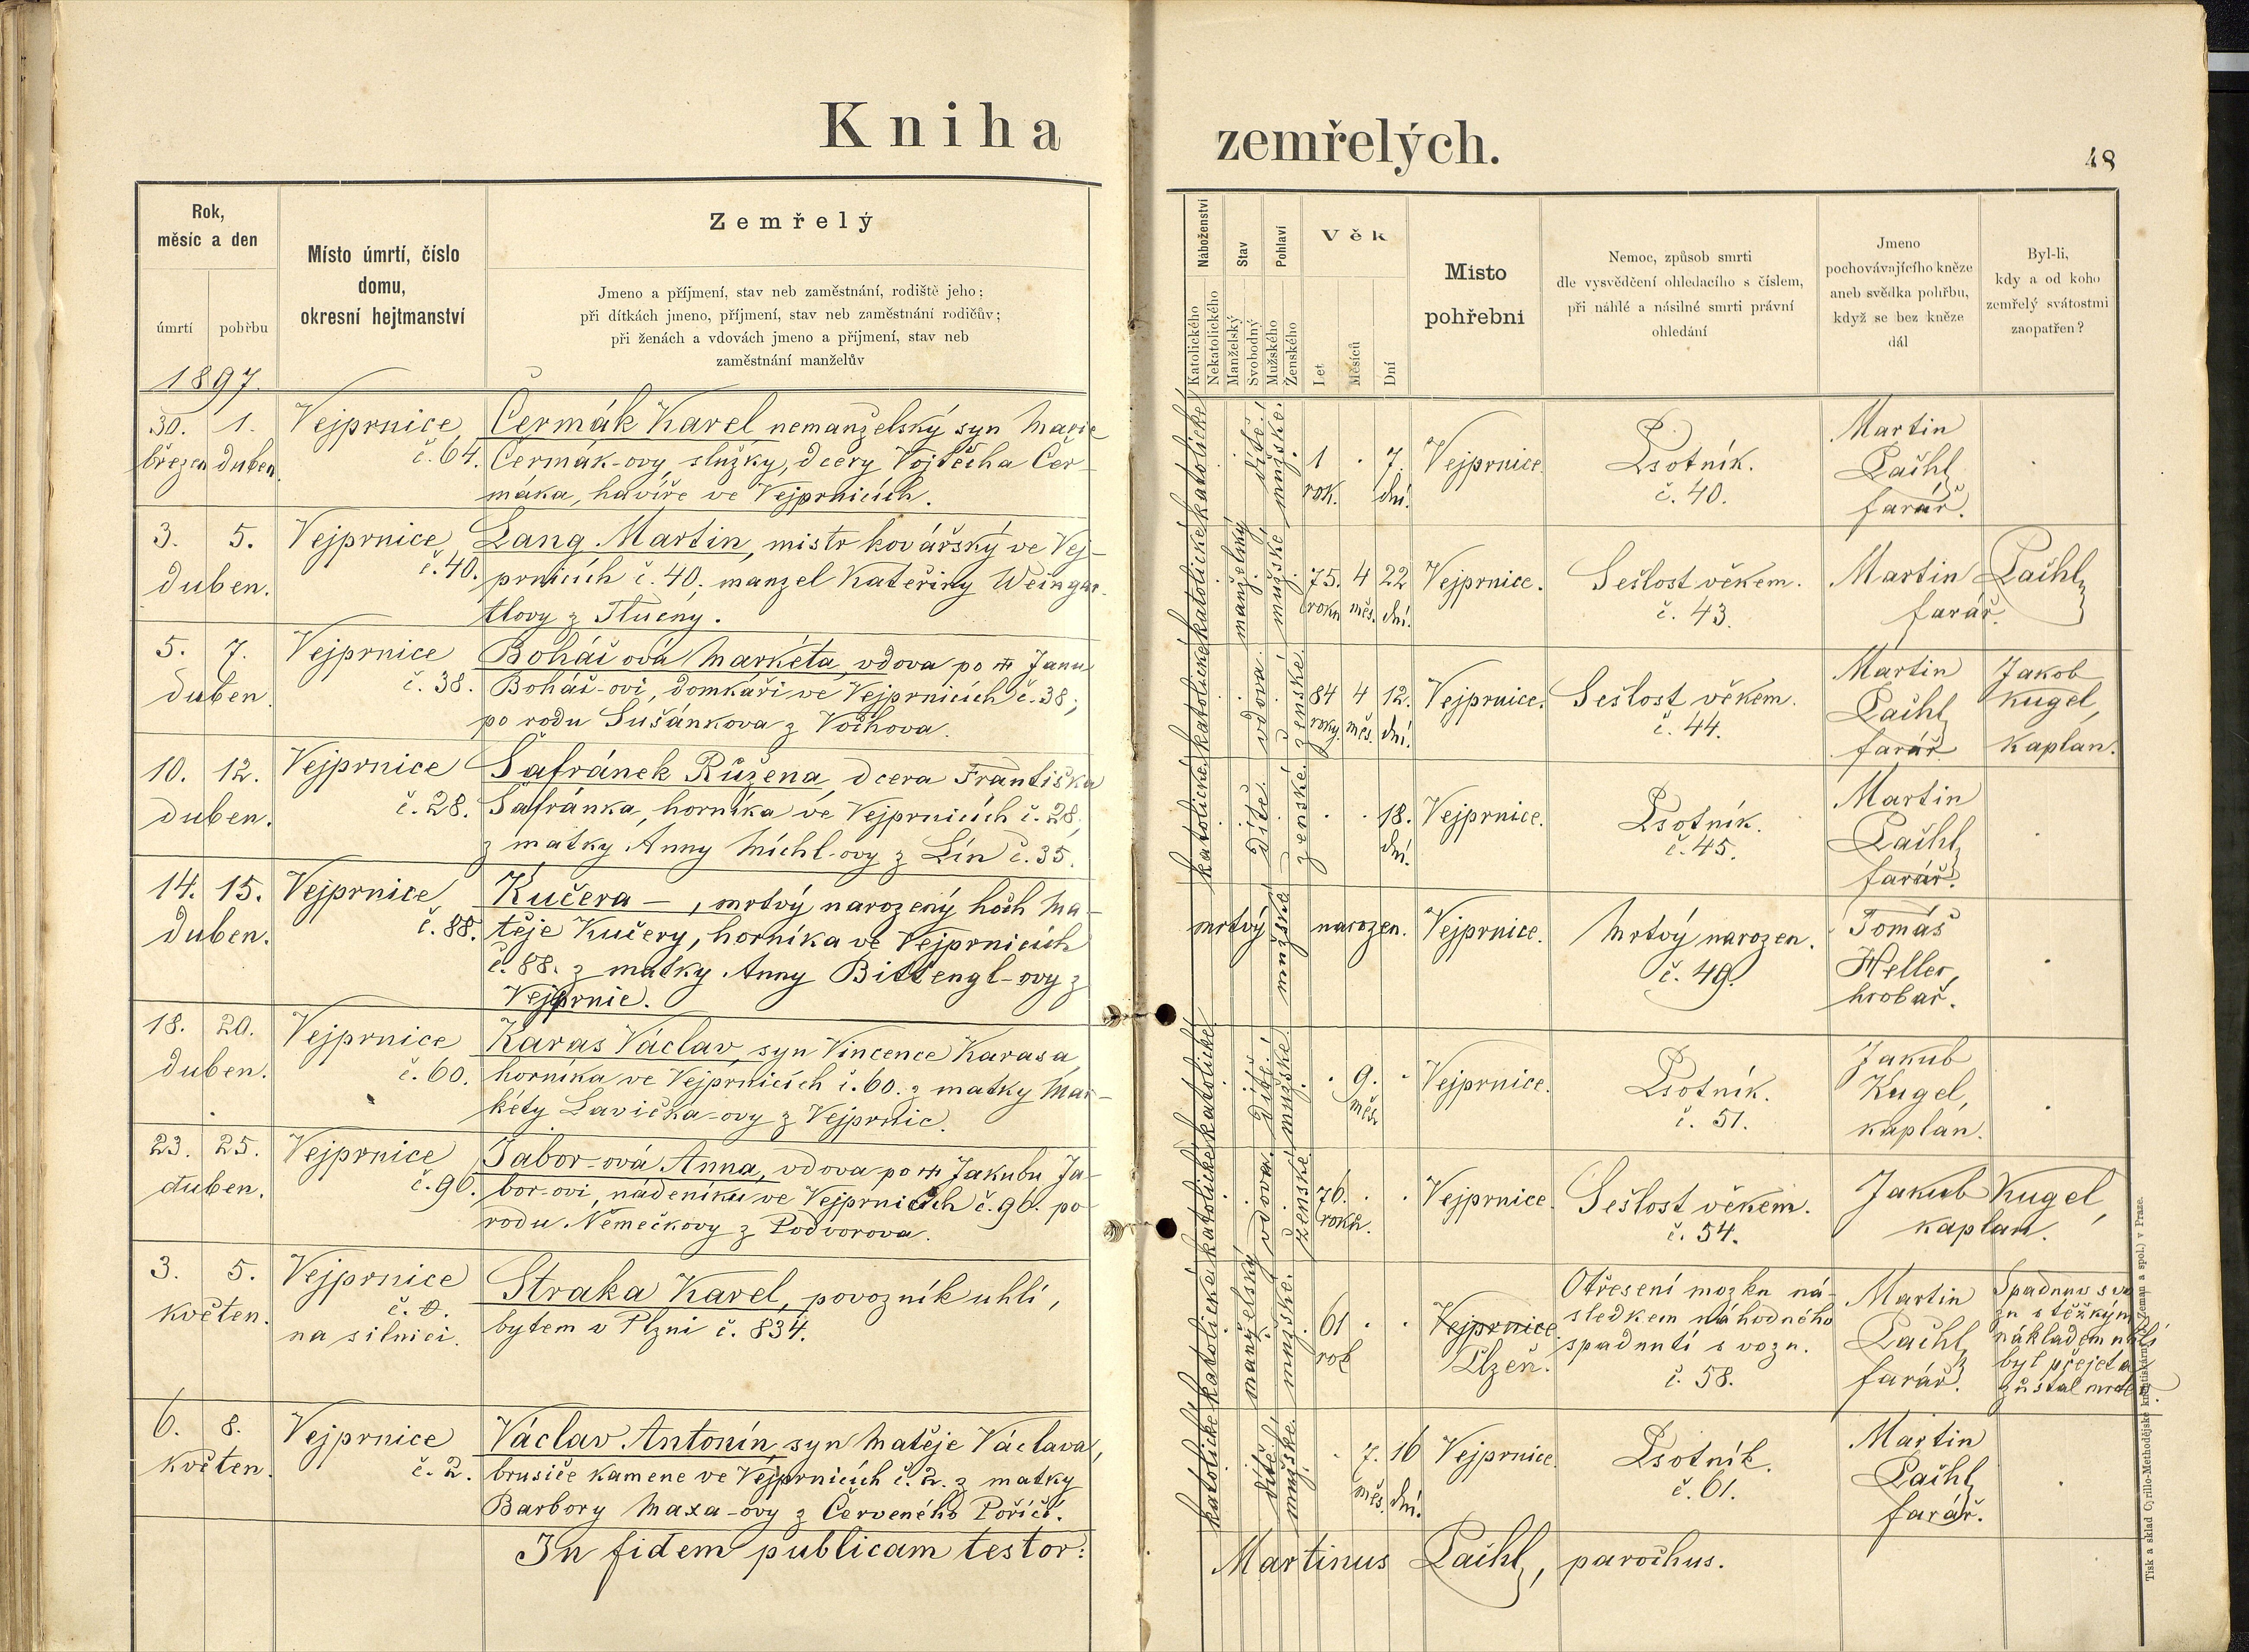 Kniha
zemřelých.
48
Rok,
měsíc a den
úmrtí
pohřbu
Místo úmrtí, číslo
domu,
okresní hejtmanství
Zemřelý
Jmeno a příjmení, stav neb zaměstnání, rodiště jeho;
při dítkách jmeno, příjmení, stav neb zaměstnání rodičův;
při ženách a vdovách jmeno a příjmení, stav neb
zaměstnání manželův
Náboženství
Katolického
Nekatolického
Stav
Manželský
Svobodný
Pohlaví
Mužského
Ženského
Věk
Let
Měsíců
Dní
Místo
pohřební
Nemoc, způsob smrti
dle vysvědčení ohledacího s číslem,
při náhlé a násilné smrti právní
ohledání
Jmeno
pochovávajícího kněze
aneb svědka pohřbu,
když se bez kněze
dál
Byl-li,
kdy a od koho
zemřelý svátostmi
zaopatřen?
1897.
30. březen
1. duben.
Vejprnice
č. 64.
Čermák Karel nemanželský syn Marie
Čermák-ovy, služky, dcery Vojtěcha Čer-
máka, havíře ve Vejprnicích.
katolické
dítě
mužské.
1 rok.
7. dní.
Vejprnice.
Psotník.
č. 40.
Martin
Pachl,
farář.
3. 5.
duben.
Vejprnice
č. 40.
Lang Martin, mistr kovářský ve Vej-
prnicích č. 40. manžel Kateřiny Weingar-
tlovy z Tlucny.
katolické
manželský
mužské
75. roků
4 měs.
22 dní.
Vejprnice.
Sešlost věkem.
č. 43.
Martin Pachl,
farář.
5. 7.
duben
Vejprnice
č. 38.
Boháčová Markéta, vdova po Janu
Boháč-ovi, domkáři ve Vejprnicích č. 38;
po rodu Sušánkova z Vochova.
katolické
vdova
ženské
84 roky.
4 měs.
12. dní.
Vejprnice.
Sešlost věkem.
č. 44.
Martin
Pachl,
farář
Jakob
Kugel,
kaplan.
10. 12.
duben.
Vejprnice
č. 28.
Šafránek Růžena, dcera Františka
Šafránka, horníka ve Vejprnicích č. 28,
z matky Anny Michl-ovy z Lín č. 35.
katolické
dítě
ženské
18. dní.
Vejprnice.
Psotník.
č. 45.
Martin
Pachl,
farář.
14. 15.
duben.
Vejprnice
č. 88.
Kučera –, mrtvý narozený hoch Ma-
těje Kučery, horníka ve Vejprnicích
č. 88. z matky Anny Bittengl-ovy z
Vejprnic.
mrtvý narozen.
mužské
Vejprnice.
Mrtvý narozen.
č. 49.
Tomáš
Heller,
hrobař.
18. 20.
duben.
Vejprnice
č. 60.
Karas Václav, syn Vincence Karasa
horníka ve Vejprnicích č. 60. z matky Mar-
kéty Lavička-ovy z Vejprnic.
katolické
dítě
mužské
9. měs.
Vejprnice.
Psotník.
č. 51.
Jakub
Kugel,
kaplan.
23. 25.
duben.
Vejprnice
č. 96.
Jabor-ová Anna, vdova po Jakubu Ja-
bor-ovi, nádeníku ve Vejprnicích č. 96. po
rodu Němečkovy z Podvorova.
katolické
vdova
ženské
76. roků.
Vejprnice.
Sešlost věkem.
č. 54.
Jakub Kugel,
kaplan.
3. 5.
květen.
Vejprnice
č. 0.
na silnici.
Straka Karel, povozník uhlí,
bytem v Plzni č. 834.
katolické
manželský
mužské.
61 rok
Vejprnice.
Plzeň.
Otřesení mozku ná-
sledkem náhodného
spadnutí s vozu.
č. 58.
Martin
Pachl,
farář.
Spadnuv s vo-
zu s těžkým
nákladem uhlí
byl přejet a
zůstal mrtev.
6. 8.
květen.
Vejprnice
č. 2.
Václav Antonín, syn Matěje Václava,
brusiče kamene ve Vejprnicích č. 2. z matky
Barbory Maxa-ovy z Červeného Poříčí.
katolické
dítě
mužské.
7. měs.
16 dní.
Vejprnice.
Psotník.
č. 61.
Martin
Pachl,
farář.
In fidem publicam testor:
Martinus Pachl, parochus.